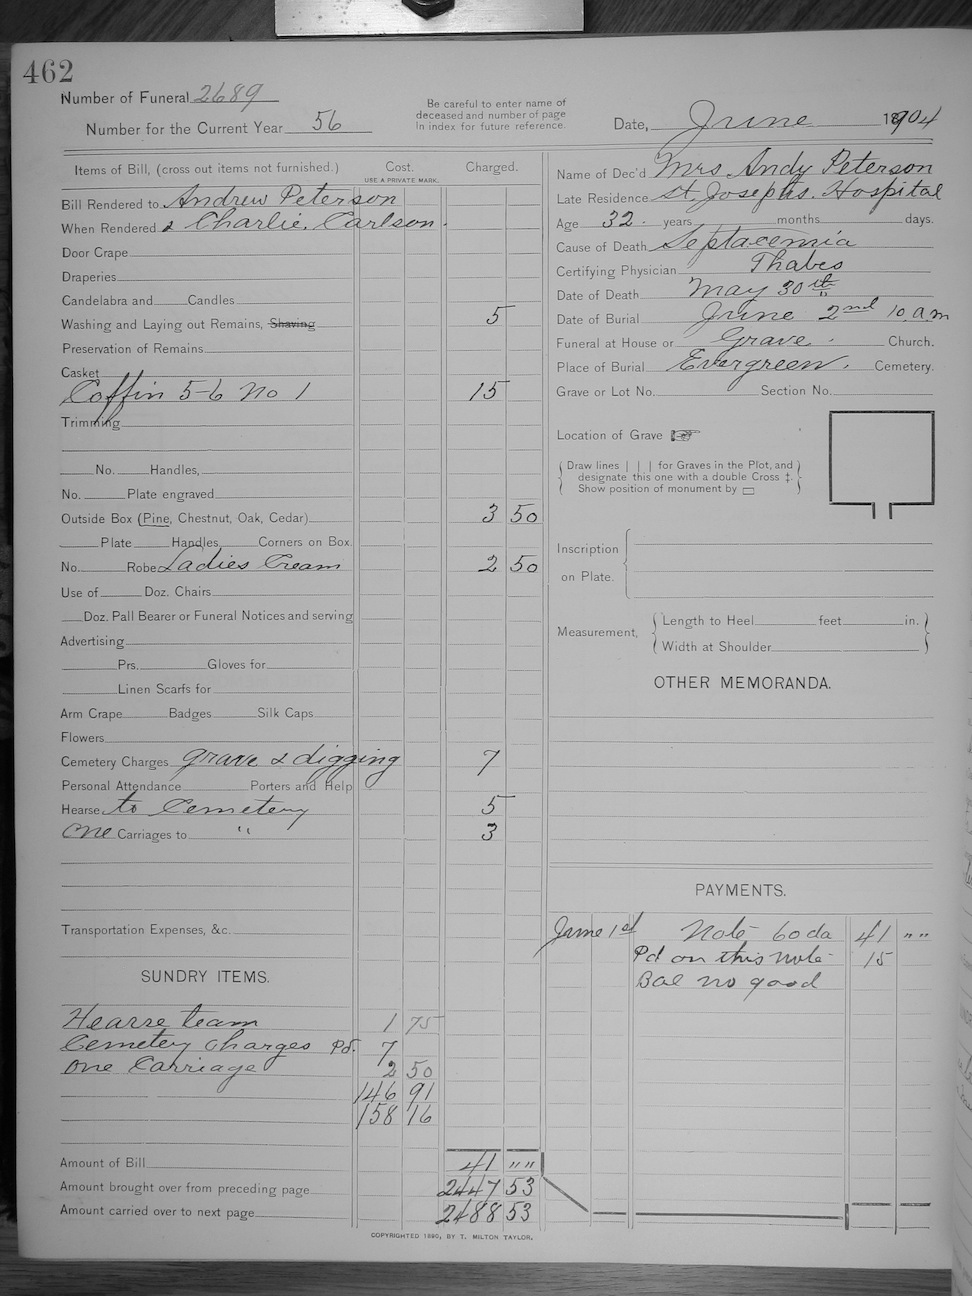 462
Number of Funeral 2689
Number for the Current Year 56
Be careful to enter name of
deceased and number of page
in index for future reference.
Date, June 1904
Items of Bill, (cross out items not furnished.) Cost. Charged.
USE A PRIVATE MARK.
Bill Rendered to Andrew Peterson
When Rendered & Charlie Carlson.
Door Crape
Draperies
Candelabra and Candles
Washing and Laying out Remains, Shaving 5
Preservation of Remains
Casket
Coffin 5-6 No 1 15
Trimming
No. Handles,
No. Plate engraved
Outside Box (Pine, Chestnut, Oak, Cedar) 3 50
Plate Handles Corners on Box.
No. Robe Ladies Cream 2 50
Use of Doz. Chairs
Doz. Pall Bearer or Funeral Notices and serving
Advertising
Prs. Gloves for
Linen Scarfs for
Arm Crape Badges Silk Caps
Flowers
Cemetery Charges grave & digging 7
Personal Attendance Porters and Help
Hearse to Cemetery 5
One Carriages to " 3
Transportation Expenses, &c.
SUNDRY ITEMS.
Hearse team 1 75
Cemetery charges Pd. 7
One Carriage 2 50
146 91
158 16
Amount of Bill 41 " "
Amount brought over from preceding page 2447 53
Amount carried over to next page 2488 53
COPYRIGHTED 1890, BY T. MILTON TAYLOR.
Name of Dec'd Mrs Andy Peterson
Late Residence St. Josephs. Hospital
Age 32 years months days.
Cause of Death Septacemia
Certifying Physician Thabes
Date of Death May 30th
Date of Burial June 2nd 10 a.m
Funeral at House or Grave. Church.
Place of Burial Evergreen. Cemetery.
Grave or Lot No. Section No.
Location of Grave ☞
Draw lines | | | for Graves in the Plot, and
designate this one with a double Cross ‡.
Show position of monument by ▭
Inscription
on Plate.
Measurement, Length to Heel feet in.
Width at Shoulder
OTHER MEMORANDA.
PAYMENTS.
June 1st Note 60 da 41 " "
Pd on this note 15
Bal no good